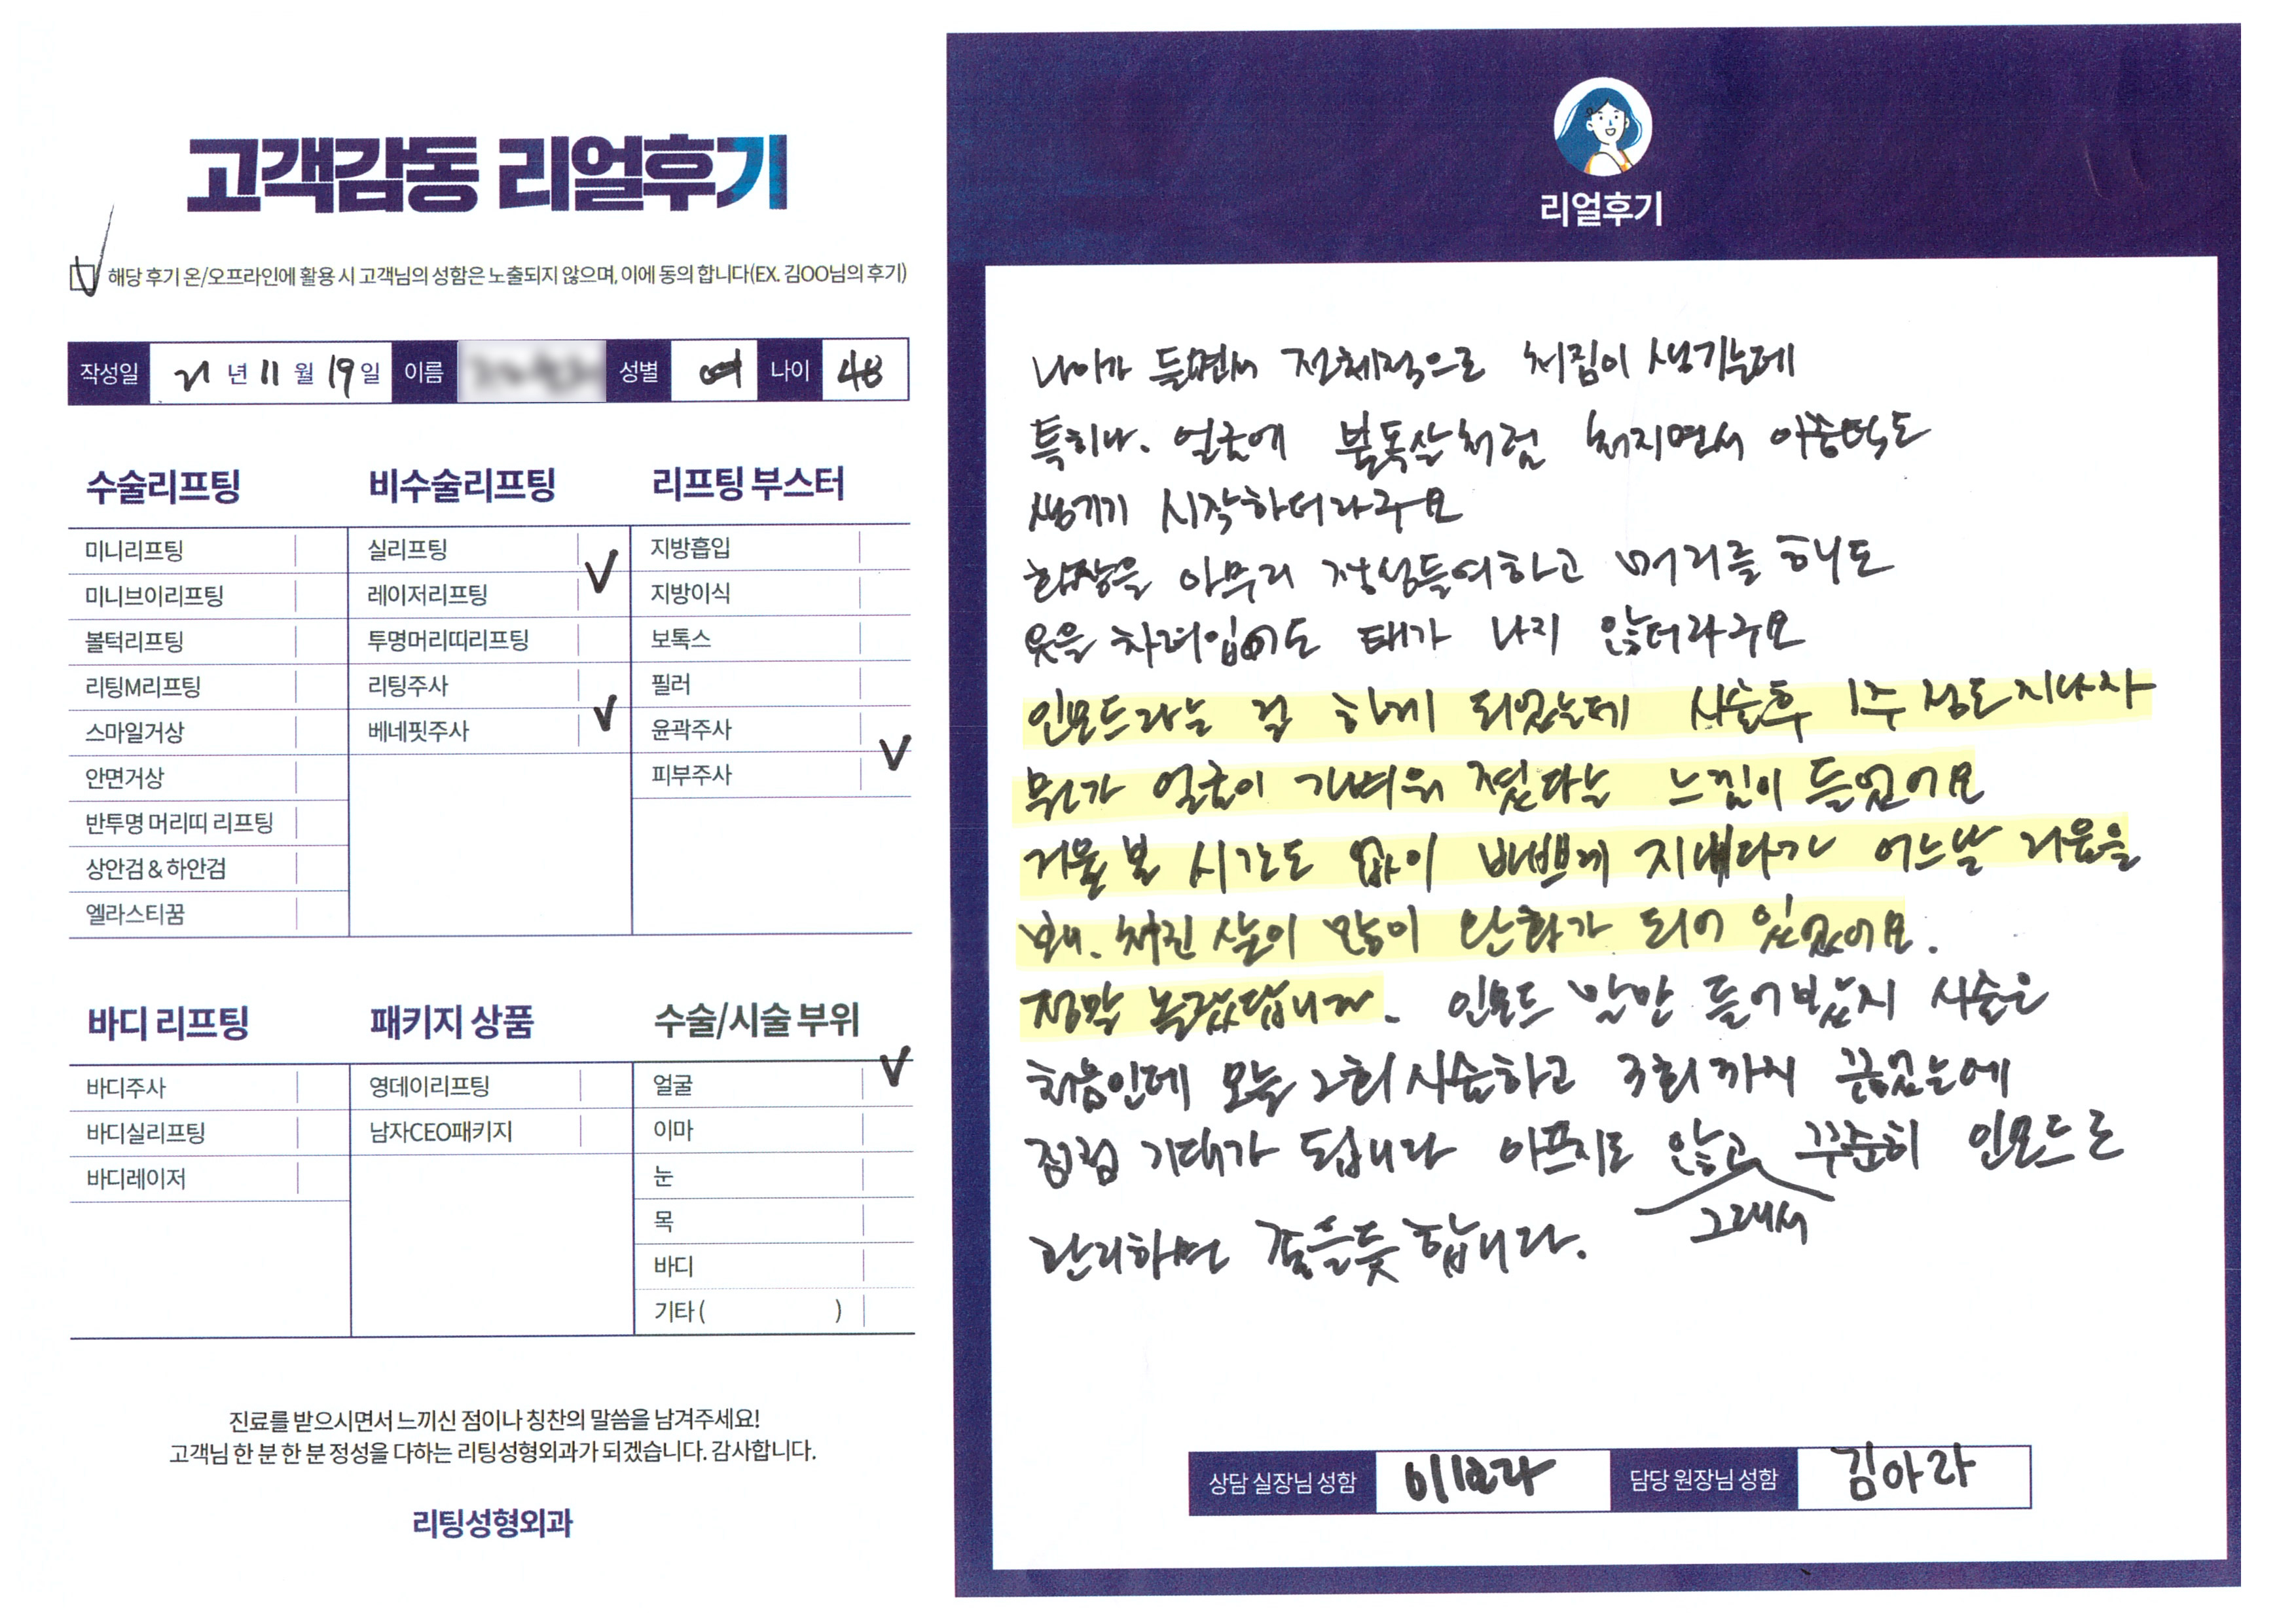 고객감동 리얼후기
해당 후기 온/오프라인에 활용 시 고객님의 성함은 노출되지 않으며, 이에 동의 합니다(EX. 김OO님의 후기)
작성일 21 년 11 월 19 일 이름 성별 여 나이 48
수술리프팅
미니리프팅
미니브이리프팅
볼턱리프팅
리팅M리프팅
스마일거상
안면거상
반투명 머리띠 리프팅
상안검 & 하안검
엘라스티꿈
비수술리프팅
실리프팅
레이저리프팅
투명머리띠리프팅
리팅주사
베네핏주사
리프팅 부스터
지방흡입
지방이식
보톡스
필러
윤곽주사
피부주사
바디 리프팅
바디주사
바디실리프팅
바디레이저
패키지 상품
영데이리프팅
남자CEO패키지
수술/시술 부위
얼굴
이마
눈
목
바디
기타 ( )
진료를 받으시면서 느끼신 점이나 칭찬의 말씀을 남겨주세요!
고객님 한 분 한 분 정성을 다하는 리팅성형외과가 되겠습니다. 감사합니다.
리팅성형외과
리얼후기
나이가 들면서 전체적으로 처짐이 생기는데
특히나. 얼굴에 불독살처럼 쳐지면서 이중턱도
생기기 시작하더라구요
화장을 아무리 정성들여하고 머리를 해도
옷을 차려입어도 태가 나지 않더라구요
인모드라는 걸 하게 되었는데 시술후 1주 정도 지나자
뭔가 얼굴이 가벼워 졌다는 느낌이 들었어요
거울 볼 시간도 없이 바쁘게 지내다가 어느날 거울을
봐. 쳐진 살이 많이 완화가 되어 있었어요.
정말 놀랐답니다. 인모드 말만 들어봤지 시술은
처음인데 오늘 2회 시술하고 3회까지 끊었는데
점점 기대가 됩니다 아프지도 않고 그래서 꾸준히 인모드로
관리하면 좋을듯 합니다.
상담 실장님 성함 이보라 담당 원장님 성함 김아라